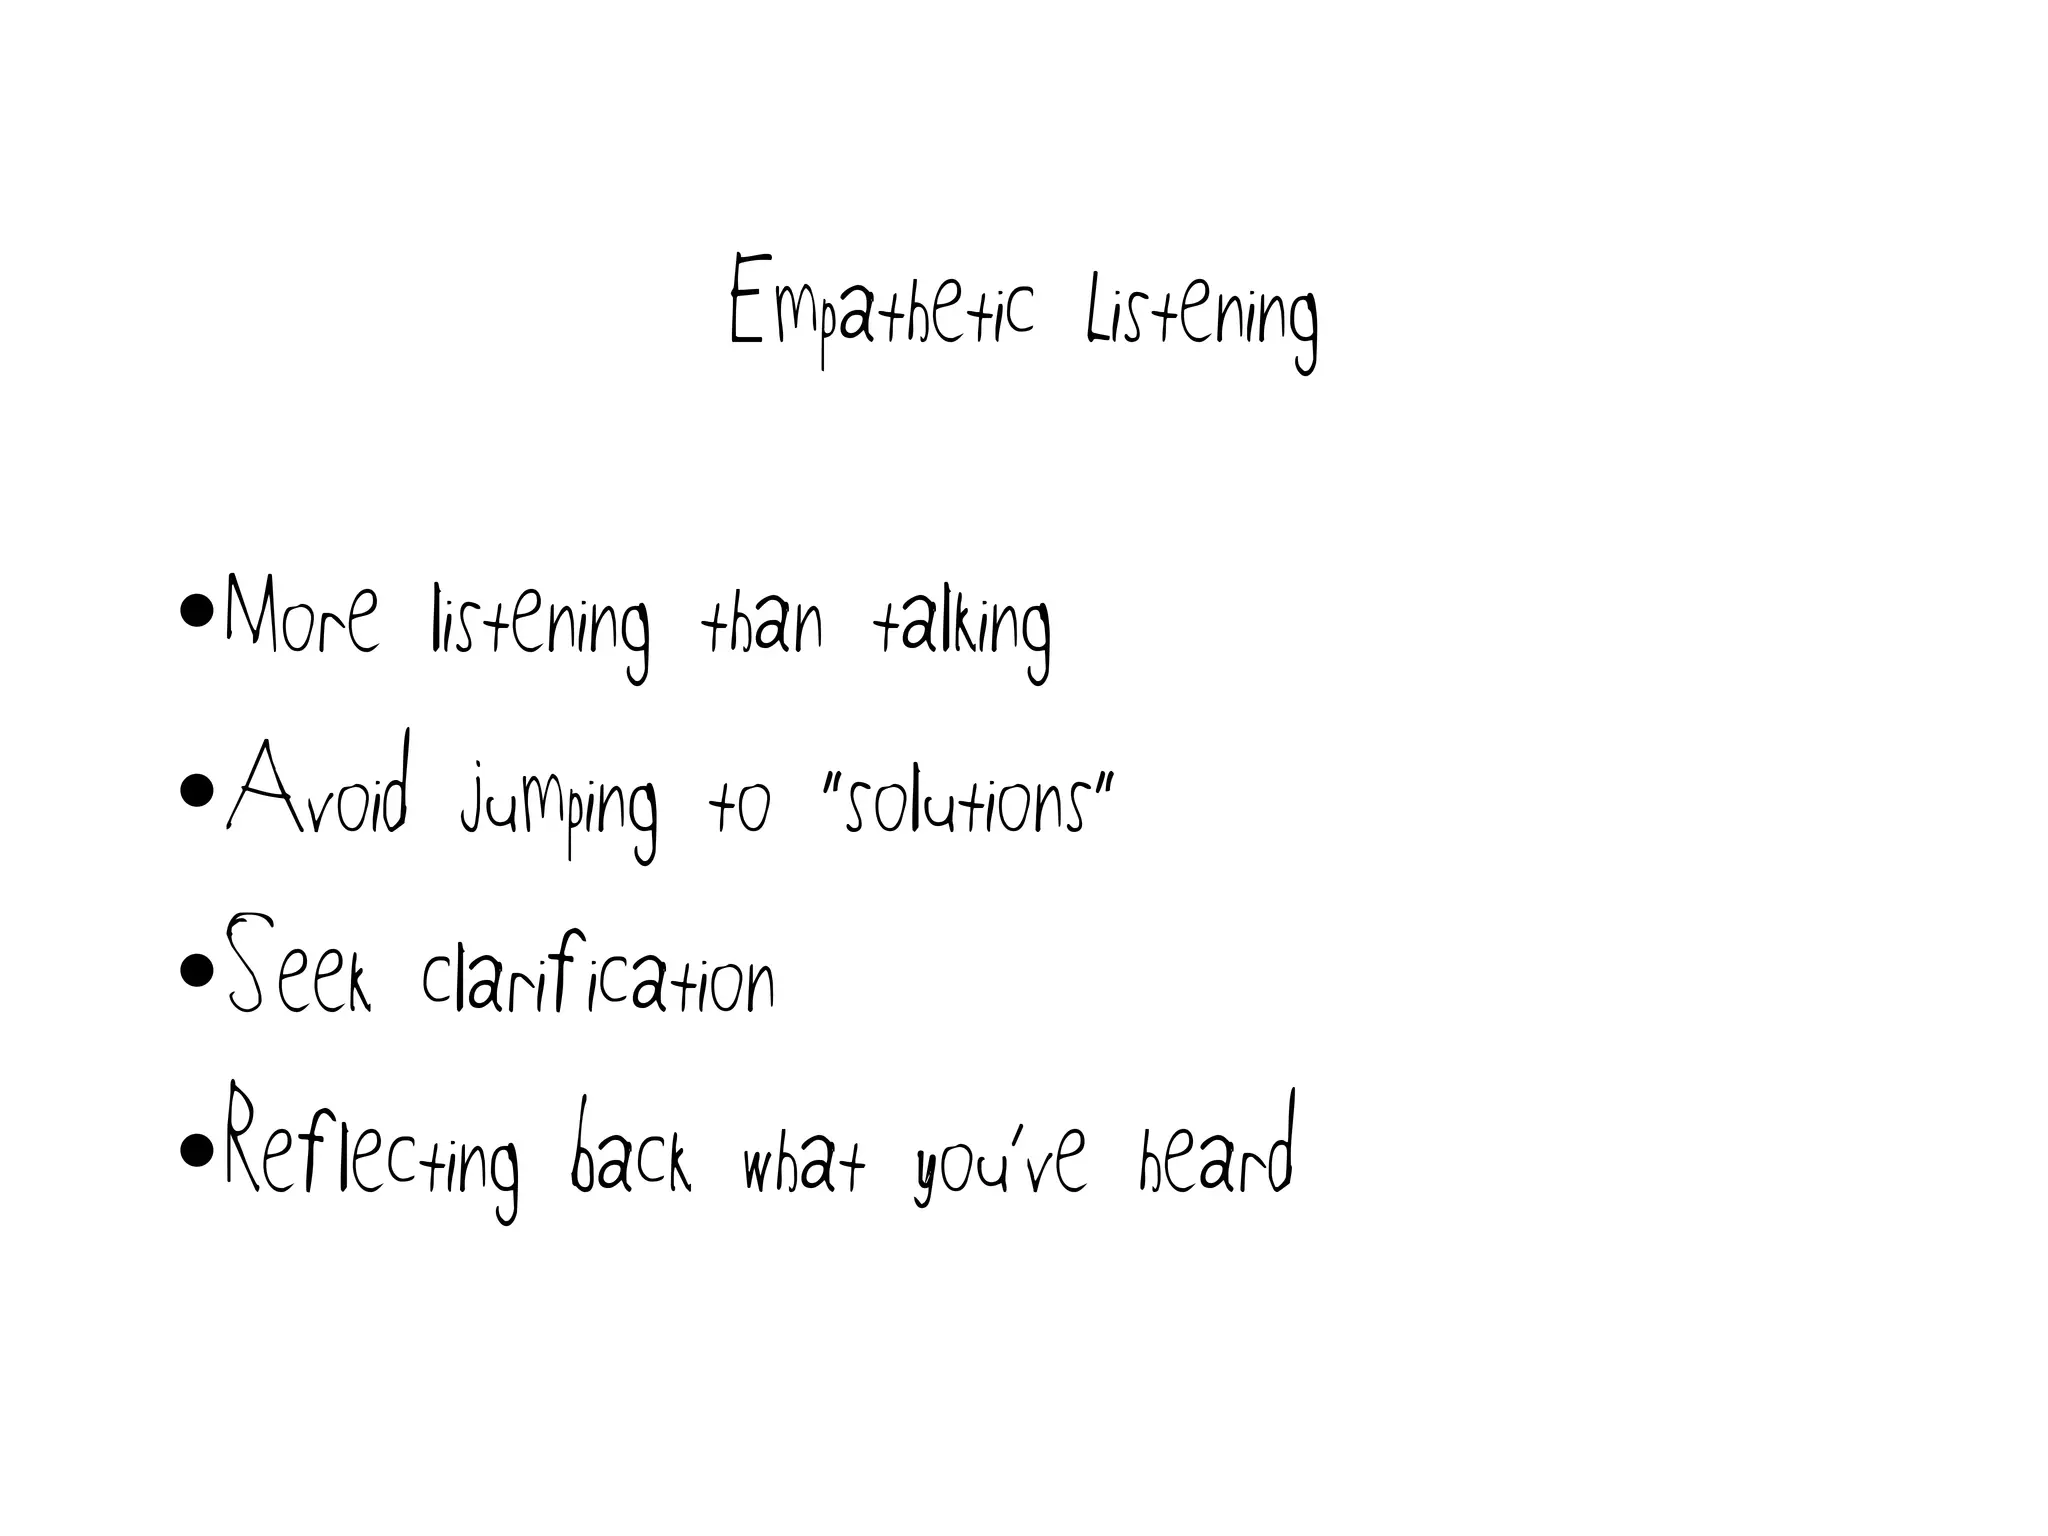 Empathetic Listening
•More listening than talking
•Avoid jumping to "solutions"
•Seek clarification
•Reflecting back what you've heard